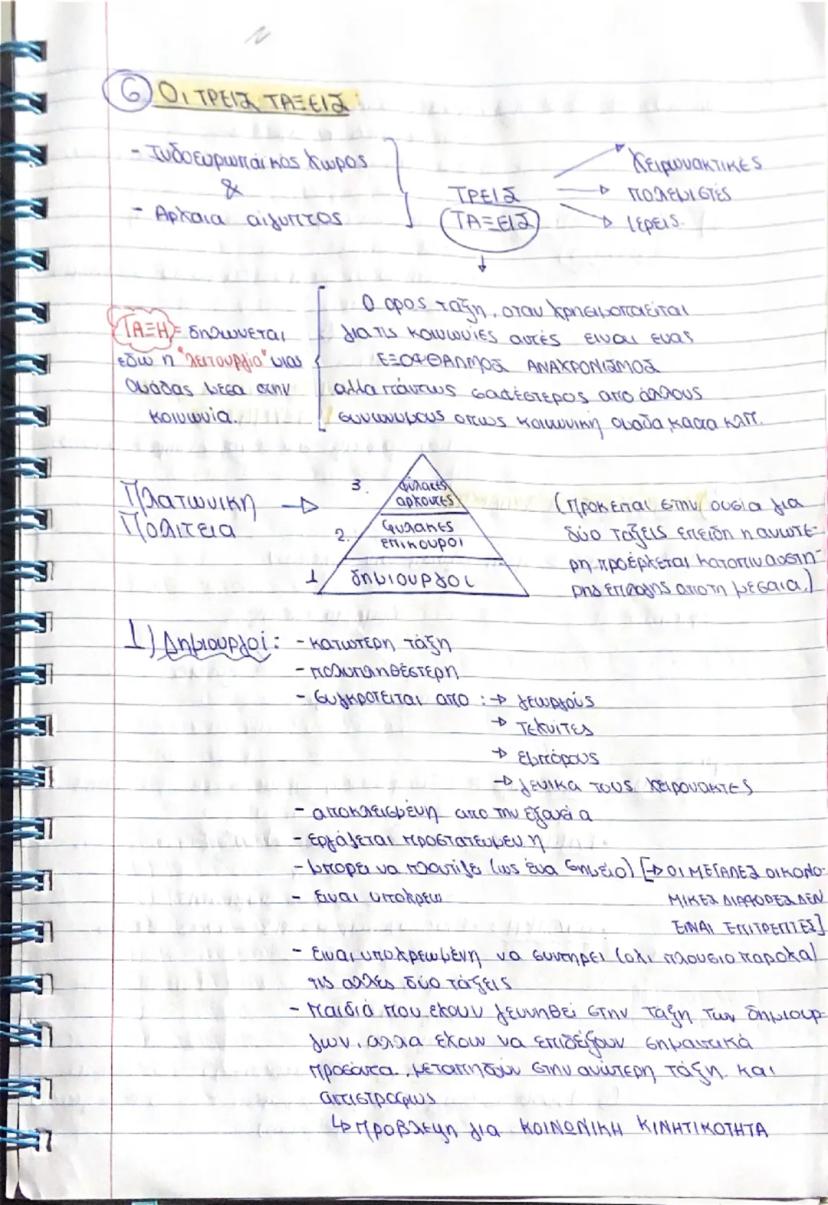 6 ΟΙ ΤΡΕΙΣ ΤΑΞΕΙΣ:
- Ινδοευρωπαϊκός Χώρος
&
- Αρχαια αίγυπτος
ΤΡΕΙΣ
ΤΑΞΕΙΣ
→ Χειρωνακτικές
→ πολεμιστές
→ ιερεις.
ΤΑΞΗ = δηλώνεται
εδώ η "λειτουργία" μιας
Ομάδας μεσα στην
κοινωνία.
Ο όρος τάξη, οταν χρησιμοποιείται
για τις κοινωνίες αυτές ειναι ενας
ΕΞΟΦΘΑΛΜΟΣ ΑΝΑΧΡΟΝΙΣΜΟΣ
αλλα πάντως σαφέστερος από άλλους
συνωνύμους οπως κοινωνική ομαδα, καστα κλπ.
Πλατωνικη →
Πολιτεια
3. φύλακες
αρχοντες
2. φυλακες
επικουροι
1 δημιουργοι
(Πρόκειται στην ουσία για
δύο τάξεις επειδη η ανωτε-
ρη προέρχεται κατοπιν αυστη-
ρης επιλογής απο τη μεσαια.)
1) Δημιουργοί: - κατωτερη τάξη
- πολυπληθέστερη
- συγκροτειται απο : → γεωργούς
→ τεχνιτες
→ εμπόρους
→ γενικα τους χειρονακτες
- αποκλεισμένη απο την εξουσία
- εργάζεται προστατευμενη
- μπορει να πλουτίζει (ως ένα σημείο) [→ ΟΙ ΜΕΓΑΛΕΣ ΟΙΚΟΝΟ-
- ειναι υποχρεω ΜΙΚΕΣ ΔΙΑΦΟΡΕΣ ΔΕΝ
ΕΙΝΑΙ ΕΠΙΤΡΕΠΤΕΣ]
- Ειναι υποχρεωμένη να συντηρει (οχι πλουσιοπαροχα)
τις αλλες δύο τάξεις
- Παιδιά που εχουν γεννηθεί στην τάξη των δημιουρ-
γων, αλλα έχουν να επιδείξουν σημαντικά
προσόντα, μεταπηδούν στην ανώτερη τάξη και
αντιστροφως
↳ Προβλεψη για ΚΟΙΝΩΝΙΚΗ ΚΙΝΗΤΙΚΟΤΗΤΑ